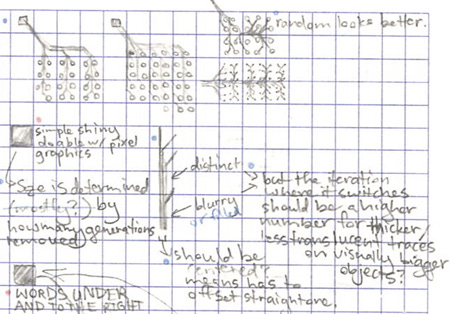 random looks better.
simple shiny
doable w/ pixel
graphics
Size is determined
(mostly?) by
how many generations
removed
distinct
blurry
but the iteration
where it switches
should be a higher
number for thicker/
less translucent traces
on visually bigger
objects?
should be
"centered?"
means has to
offset straight one.
WORDS UNDER
AND TO THE RIGHT